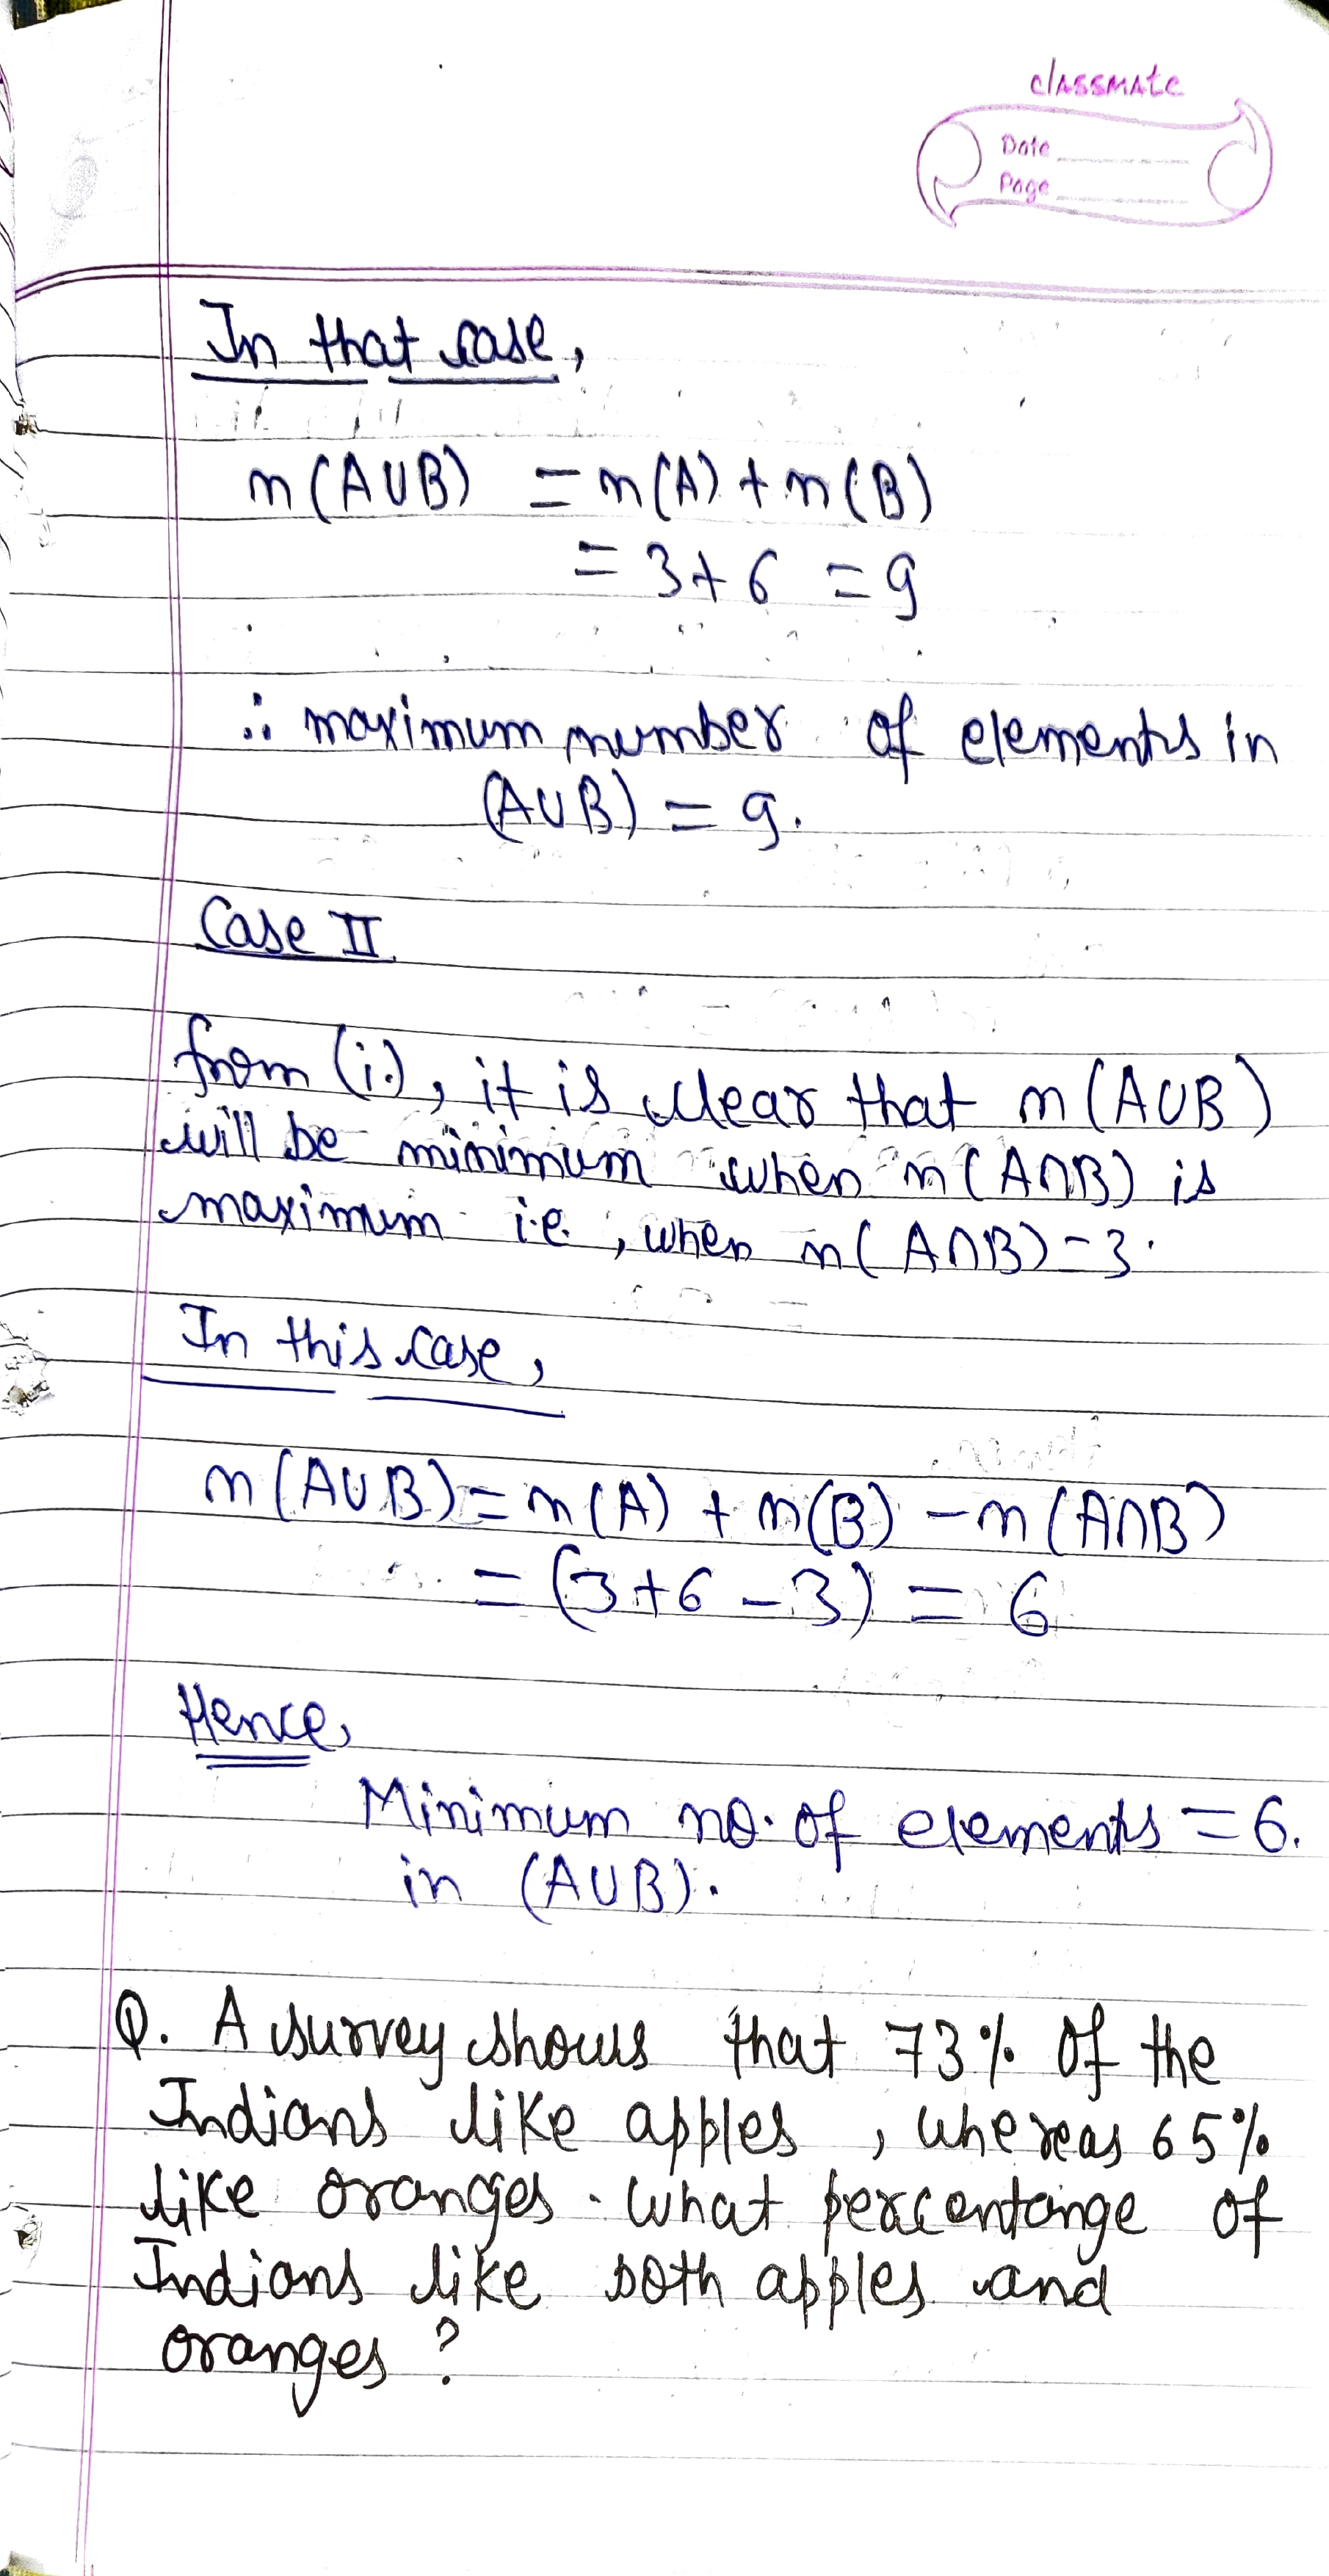 classmate
Date
Page
In that case,
n(A∪B) = n(A) + n(B)
= 3+6 = 9
∴ maximum number of elements in
(A∪B) = 9.
Case II
from (i.), it is clear that n(A∪B)
will be minimum when n(A∩B) is
maximum i.e. , when n(A∩B)=3.
In this case,
n(A∪B) = n(A) + n(B) - n(A∩B)
= (3+6-3) = 6
Hence,
Minimum no. of elements = 6.
in (A∪B).
Q. A survey shows that 73% of the
Indians like apples , whereas 65%
like oranges. What percentange of
Indians like both apples and
oranges ?